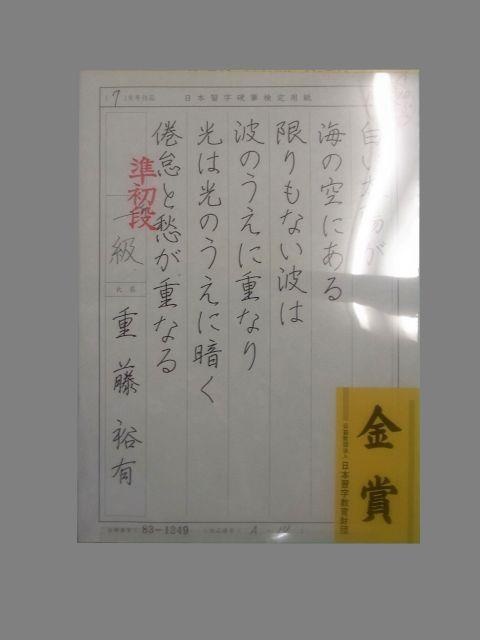 7 月号作品
日本習字硬筆検定用紙
白い太陽が
海の空にある
限りもない波は
波のうえに重なり
光は光のうえに暗く
倦怠と愁が重なる
準初段
級
氏名
重藤裕有
83-1249
金賞
公益財団法人
日本習字教育財団